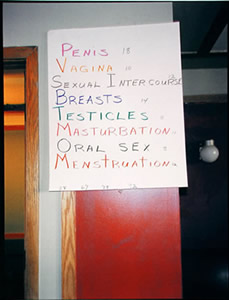 PENIS 18
VAGINA
SEXUAL INTERCOURSE
BREASTS 14
TESTICLES
MASTURBATION
ORAL SEX
MENSTRUATION